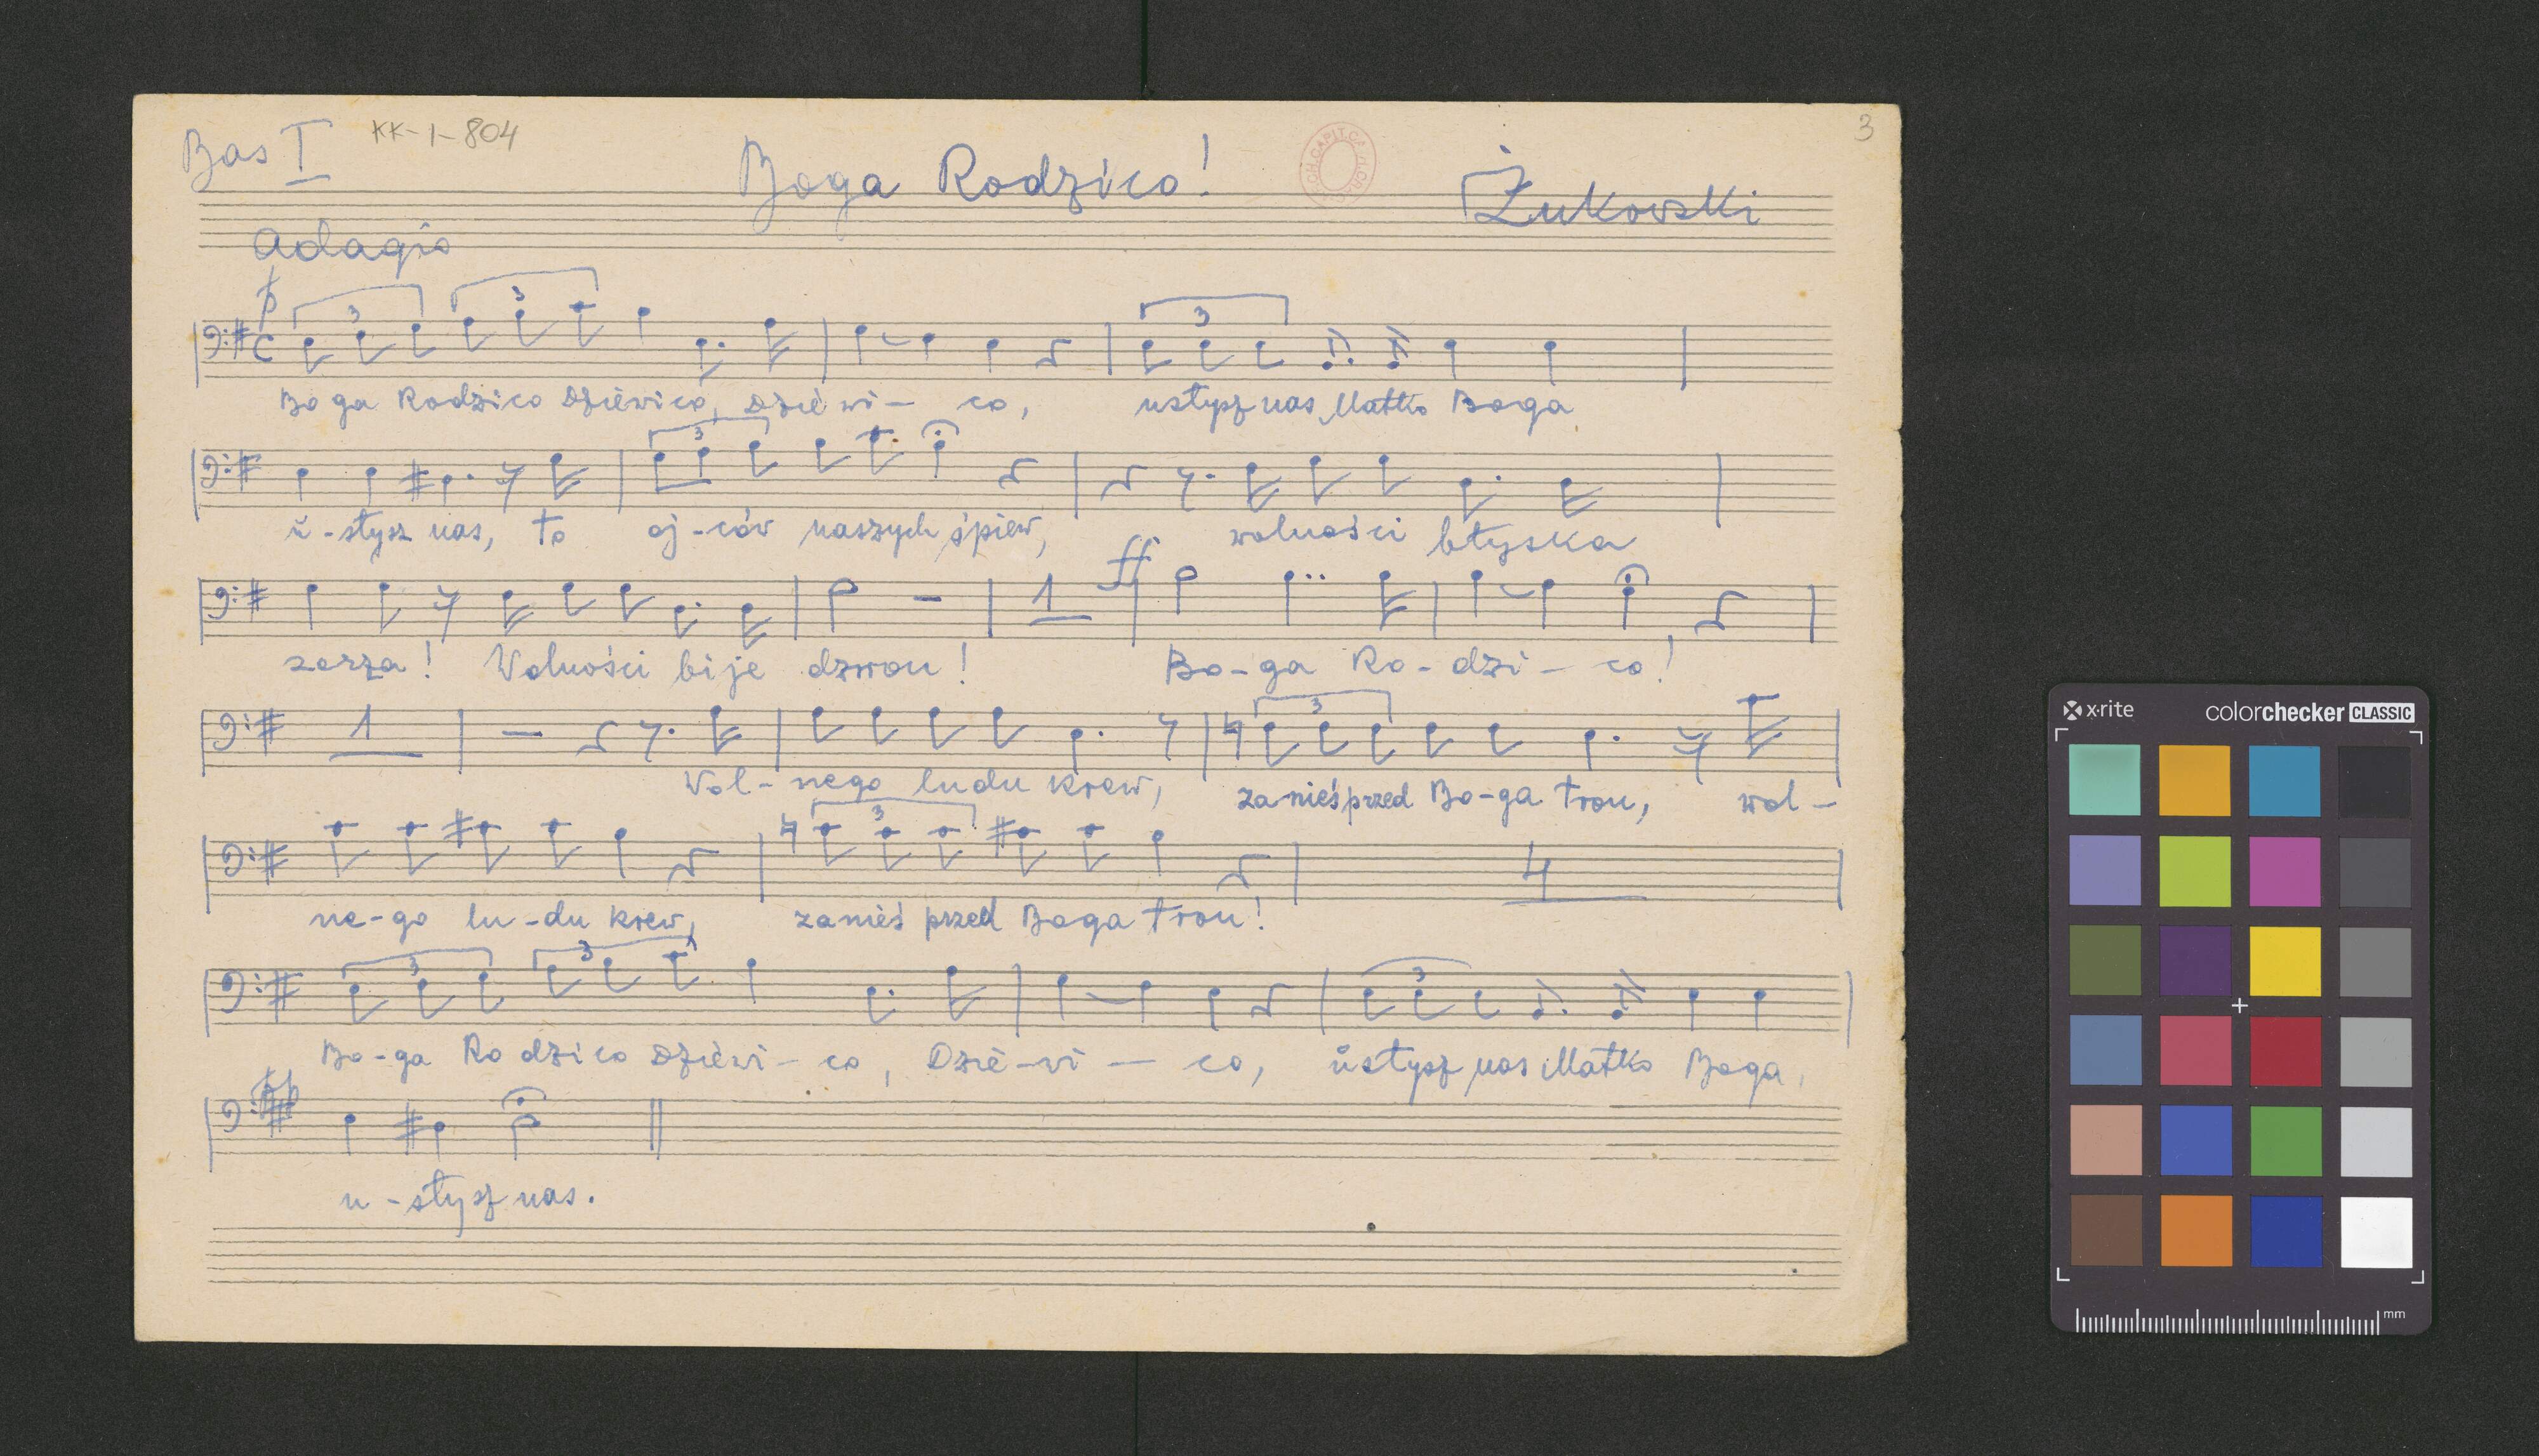 Bas I KK-1-804 Boga Rodzico! Żukowski 3
Adagio
p
3 3 3
Bo ga Rodzico Dziewico, Dzie wi - co, usłysz nas Matko Boga
3
u - słysz nas, to oj - ców naszych śpiew, wolności błyska
1 ff
zorza! Wolności bije dzwon! Bo - ga Ro - dzi - co!
1 3
Wol - nego ludu krew, zanieś przed Bo - ga tron, wol -
3 4
ne - go lu - du krew, zanieś przed Boga tron!
3 3 3
Bo - ga Ro dzico Dziewi - co, Dzie - wi - co, usłysz nas Matko Boga,
u - słysz nas.
x·rite colorchecker CLASSIC
mm